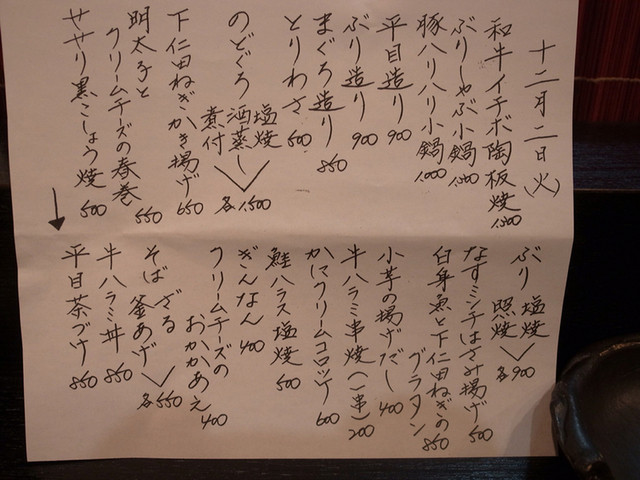 十二月二日(火)
和牛イチボ陶板焼
ぶりしゃぶ小鍋
豚ハリハリ小鍋 1,000
平目造り 900
ぶり造り 900
まぐろ造り 850
とりわさ 500
のどぐろ 塩焼 酒蒸し 煮付 各1,500
下仁田ねぎかき揚げ 650
明太子と
クリームチーズの春巻 550
せせり黒こしょう焼 500
ぶり 塩焼 照焼 各900
なすミンチはさみ揚げ 500
白身魚と下仁田ねぎの
グラタン 850
小芋の揚げだし 400
牛ハラミ串焼(一串) 200
かにクリームコロッケ 600
鮭ハラス塩焼 500
ぎんなん 400
クリームチーズの
おかかあえ 400
そば ざる 釜あげ 各550
牛ハラミ丼 850
平目茶づけ 850